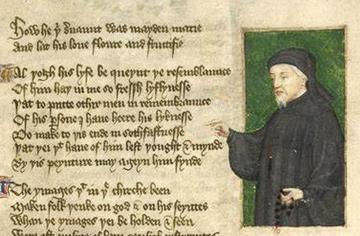 How he yͤ s̾uaunt was mayden marie
And lat his loue floure and fructifie
Al yogh his lyfe be queynt yͤ resemblaunce
Of him haþ in me so fressh lyflynesse
Þat to putte othir men in remembraunce
Of his ꝑsone I haue heere his lyknesse
Do make to þis ende in sothfastnesse
Þat þei yͭ haue of him left þought & mynde
By þis peynture may ageyn him fynde
The ymages yͭ in yͤ chirche been
Maken folk þenke on god & on his seyntes
Whan yͤ ymages þei be holden & seen